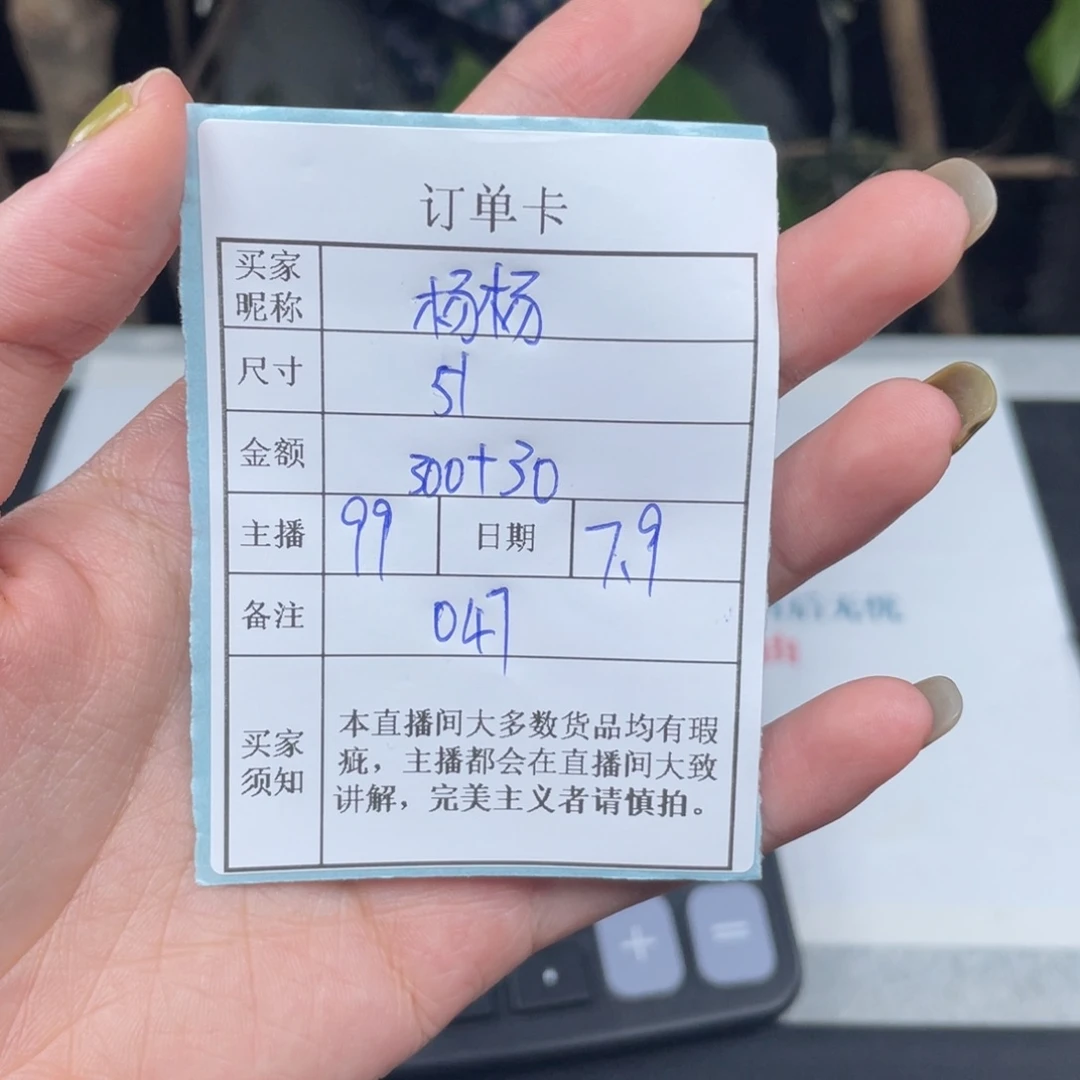 订单卡
买家昵称 杨杨
尺寸 51
金额 300+30
主播 99 日期 7.9
备注 047
买家须知
本直播间大多数货品均有瑕
疵，主播都会在直播间大致
讲解，完美主义者请慎拍。
+ =